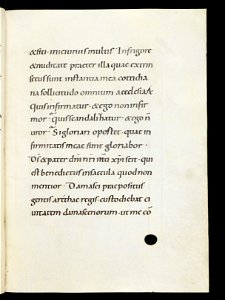 & siti · inieiuniis multis · In frigore
& nuditate praeter illa quae extrin
secus sunt instantia mea cottidia
na sollicitudo omnium aecclesiarũ
Quis infirmatur · & ego non infir
mor · quis scandalizatur · & ego ñ
uror · Si gloriari oportet · quae in
firmitatis meae sunt gloriabor ·
Ds̃ & pater dñi nr̃i ihũ xpĩ scit · qui
est benedictus in saecula quod non
mentior · Damasci praepositus
gentis arethae regis custodiebat ci
uitatem damascenorum · ut me cõ